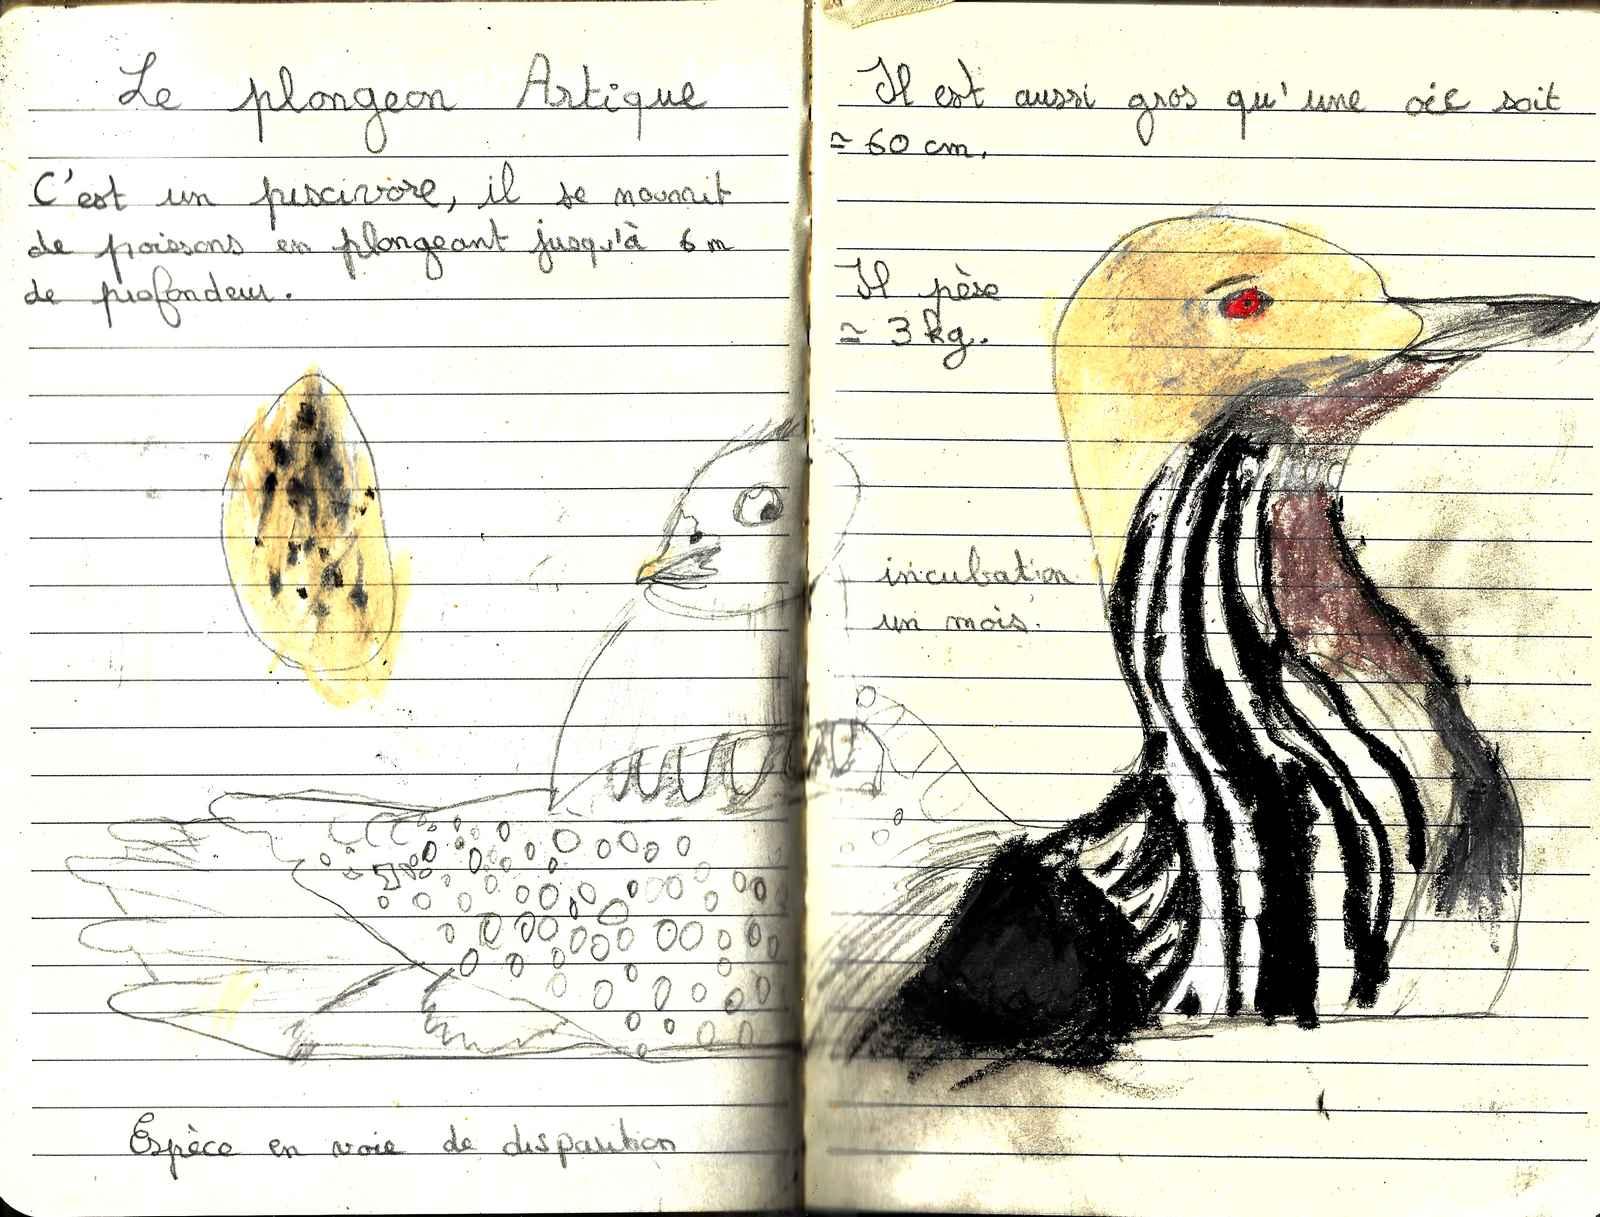 Le plongeon Artique
C'est un piscivore, il se nourrit
de poissons en plongeant jusqu'à 6 m
de profondeur.
Espèce en voie de disparition
Il est aussi gros qu'une oie soit
≃ 60 cm.
Il pèse
≃ 3 kg.
incubation
un mois.